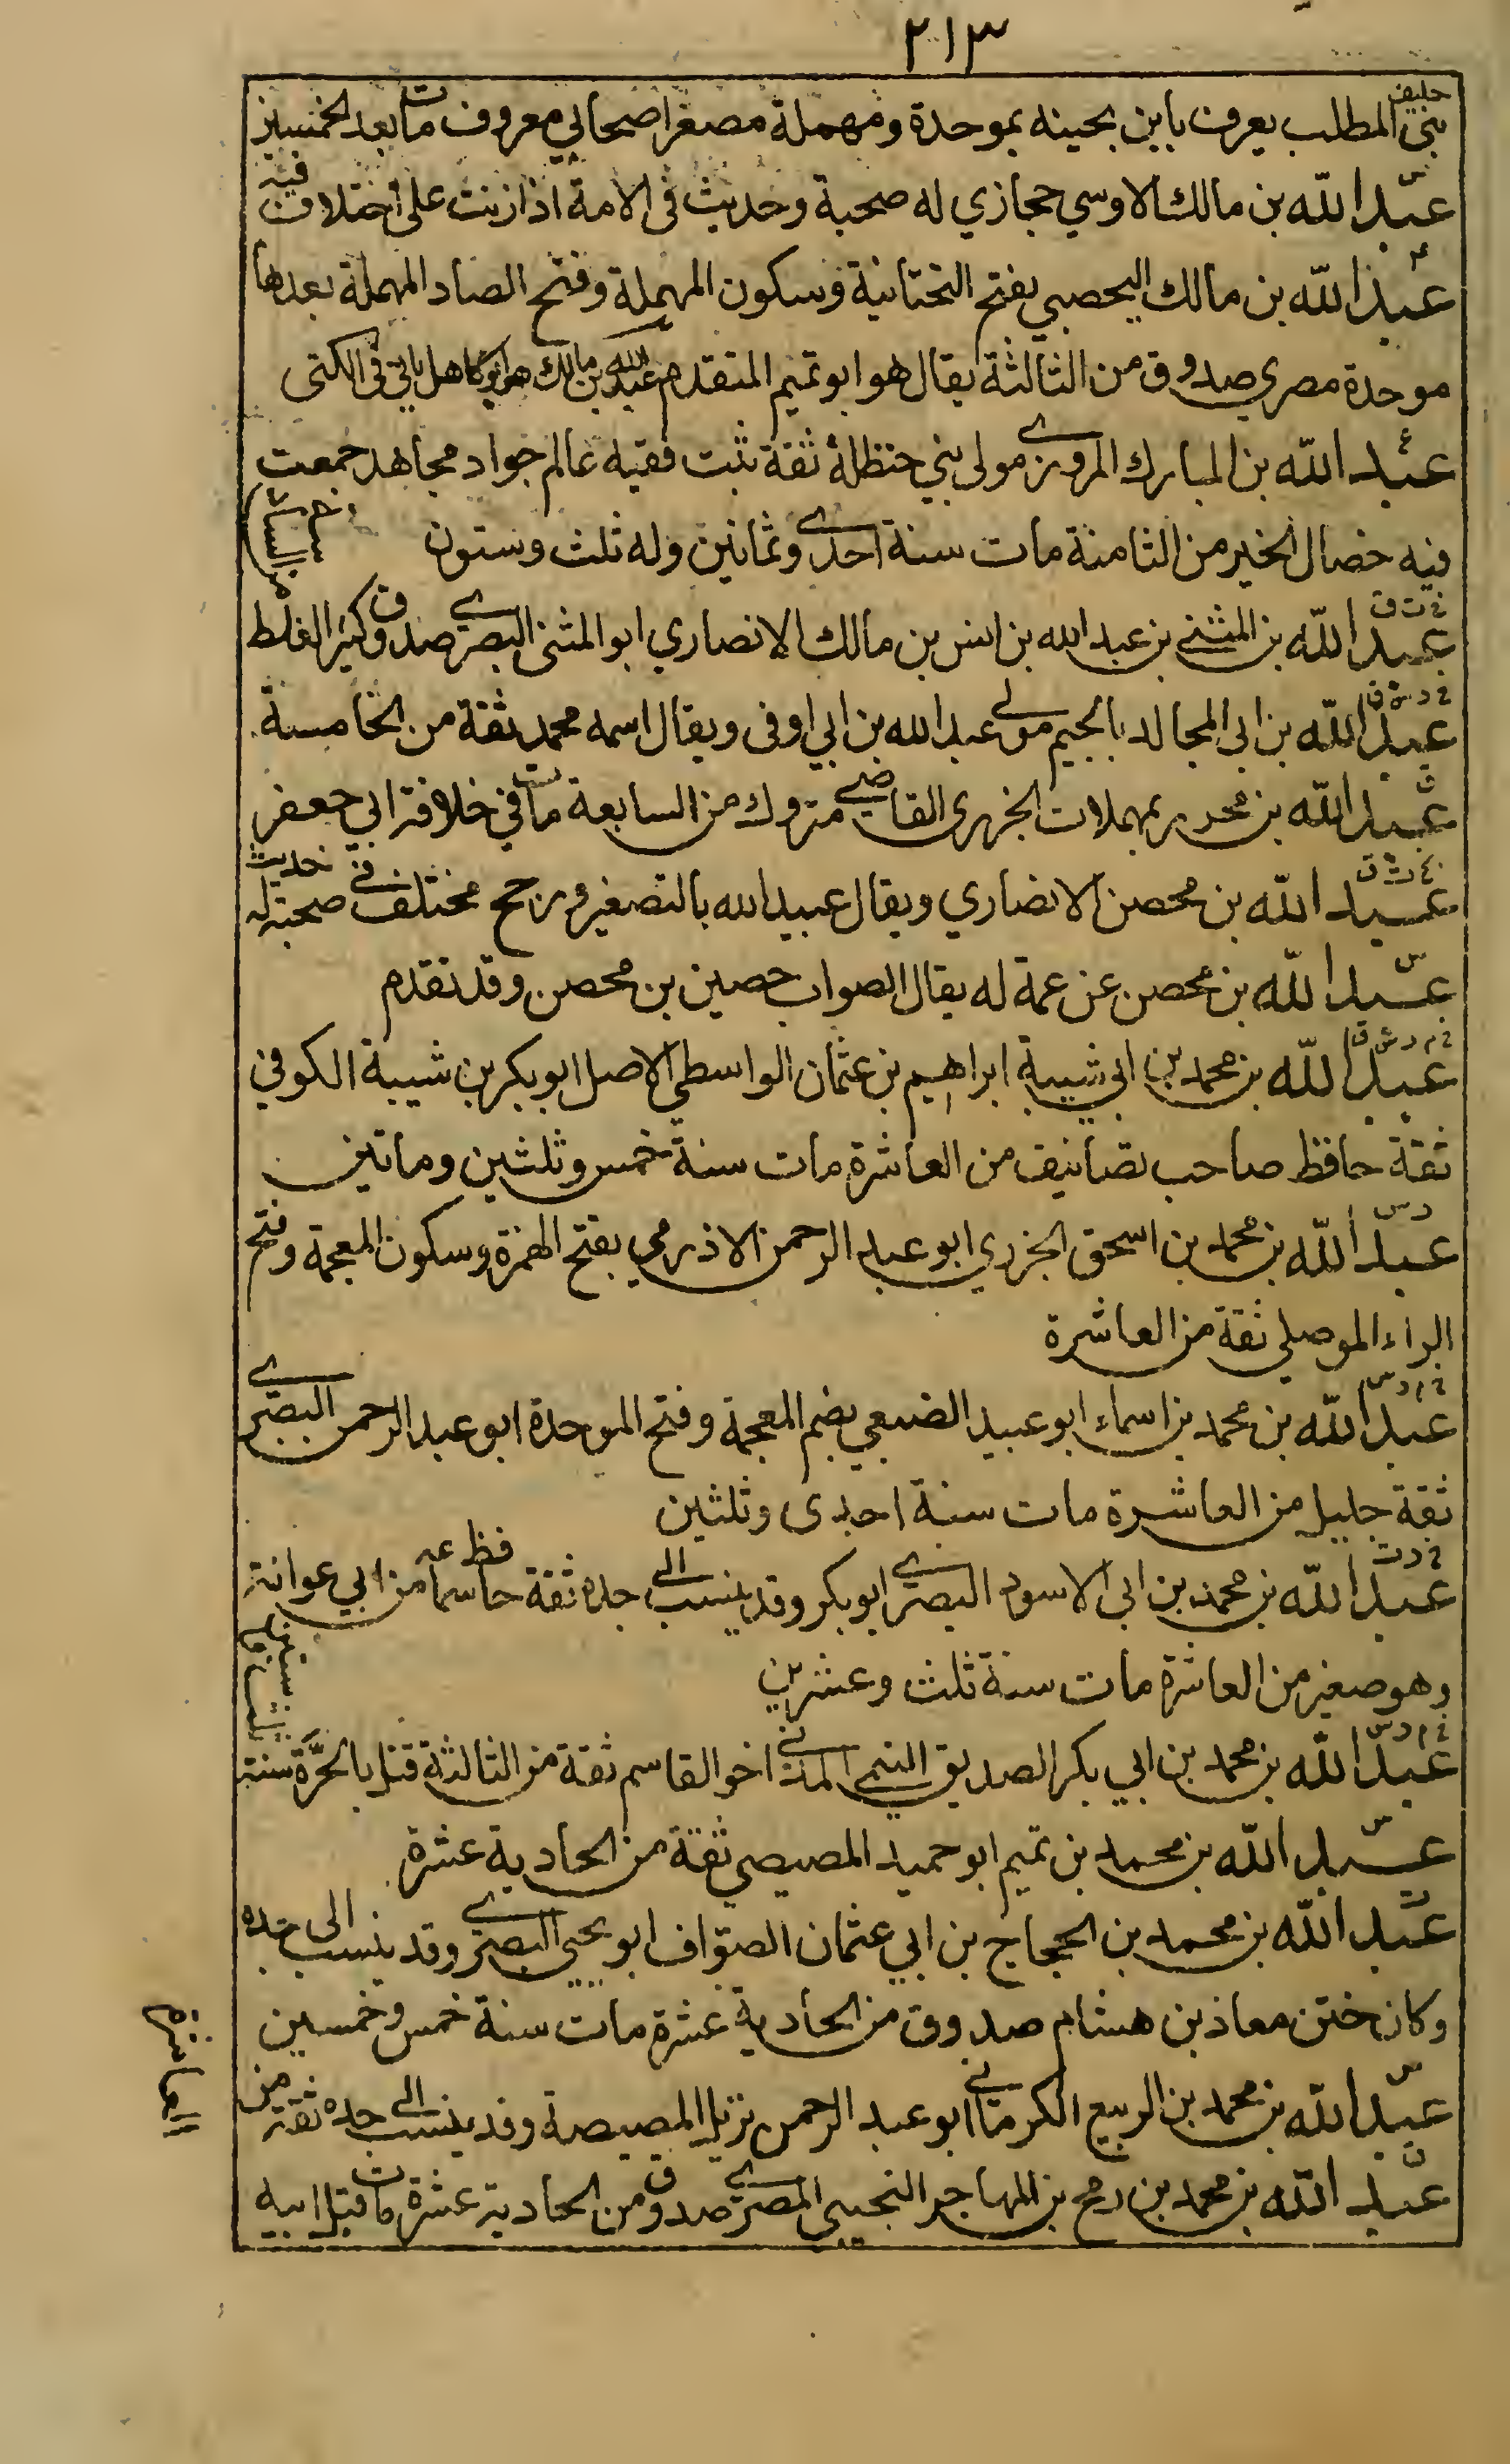 ٢١٣
حليف
بني المطلب يعرف بابن بحينه بموحدة ومهملة مصغرا صحابي معروف مات بعد الخمسين
س
عبد الله بن مالك الاوسي حجازي له صحبة وحديث في الامة اذا زنت على اختلاف فيه
عبد الله بن مالك اليحصبي بفتح التحتانية وسكون المهملة وفتح الصاد المهملة بعدها
موحدة مصري صدوق من الثالثة يقال هو ابو تميم المتقدم عبد الله بن مالك هو ابو كاهل ياتي في الكنى
ع
عبد الله بن المبارك المروزي مولى بني حنظلة ثقة ثبت فقيه عالم جواد مجاهد جمعت
فيه خصال الخير من الثامنة مات سنة احدى وثمانين وله ثلث وستون
خ ت ق
عبد الله بن المثنى بن عبد الله بن انس بن مالك الانصاري ابو المثنى البصري صدوق كثير الغلط
من السادسة
خ د س ق
عبد الله بن ابي المجالد بالجيم مولى عبد الله بن ابي اوفى ويقال اسمه محمد ثقة من الخامسة
ق
عبد الله بن محرر بمهملات الجزري القاضي متروك من السابعة مات في خلافة ابي جعفر
بخ ت ق
عبد الله بن محصن الانصاري ويقال عبيد الله بالتصغير ورجح مختلف في صحبته له حديث
س
عبد الله بن محصن عن عمة له يقال الصواب حصين بن محصن وقد تقدم
خ م د س ق
عبد الله بن محمد بن ابي شيبة ابراهيم بن عثمان الواسطي الاصل ابو بكر بن شيبة الكوفي
ثقة حافظ صاحب تصانيف من العاشرة مات سنة خمس وثلثين وماتين
د س
عبد الله بن محمد بن اسحق الجزري ابو عبد الرحمن الاذرمي بفتح الهمزة وسكون المعجمة وفتح
الراء الموصلي ثقة من العاشرة
خ م د س
عبد الله بن محمد بن اسماء ابو عبيد الضبعي بضم المعجمة وفتح الموحدة ابو عبد الرحمن البصري
ثقة جليل من العاشرة مات سنة احدى وثلثين
خ د ت
عبد الله بن محمد بن ابي الاسود البصري ابو بكر وقد ينسب الى جده ثقة حافظ سماعه من ابي عوانة
وهو صغير من العاشرة مات سنة ثلث وعشرين
خ م د س
عبد الله بن محمد بن ابي بكر الصديق التيمي المدني اخو القاسم ثقة من الثالثة قتل بالحرة سنة
ثلث وستين
س
عبد الله بن محمد بن تميم ابو حميد المصيصي ثقة من الحادية عشرة
ت
عبد الله بن محمد بن الحجاج بن ابي عثمان الصواف ابو يحيى البصري وقد ينسب الى جده
وكان ختن معاذ بن هشام صدوق من الحادية عشرة مات سنة خمس وخمسين
س
عبد الله بن محمد بن الربيع الكرماني ابو عبد الرحمن نزيل المصيصة وقد ينسب الى جده ثقة من
العاشرة
ق
عبد الله بن محمد بن رمح بن المهاجر التجيبي المصري صدوق من الحادية عشرة مات قبل ابيه